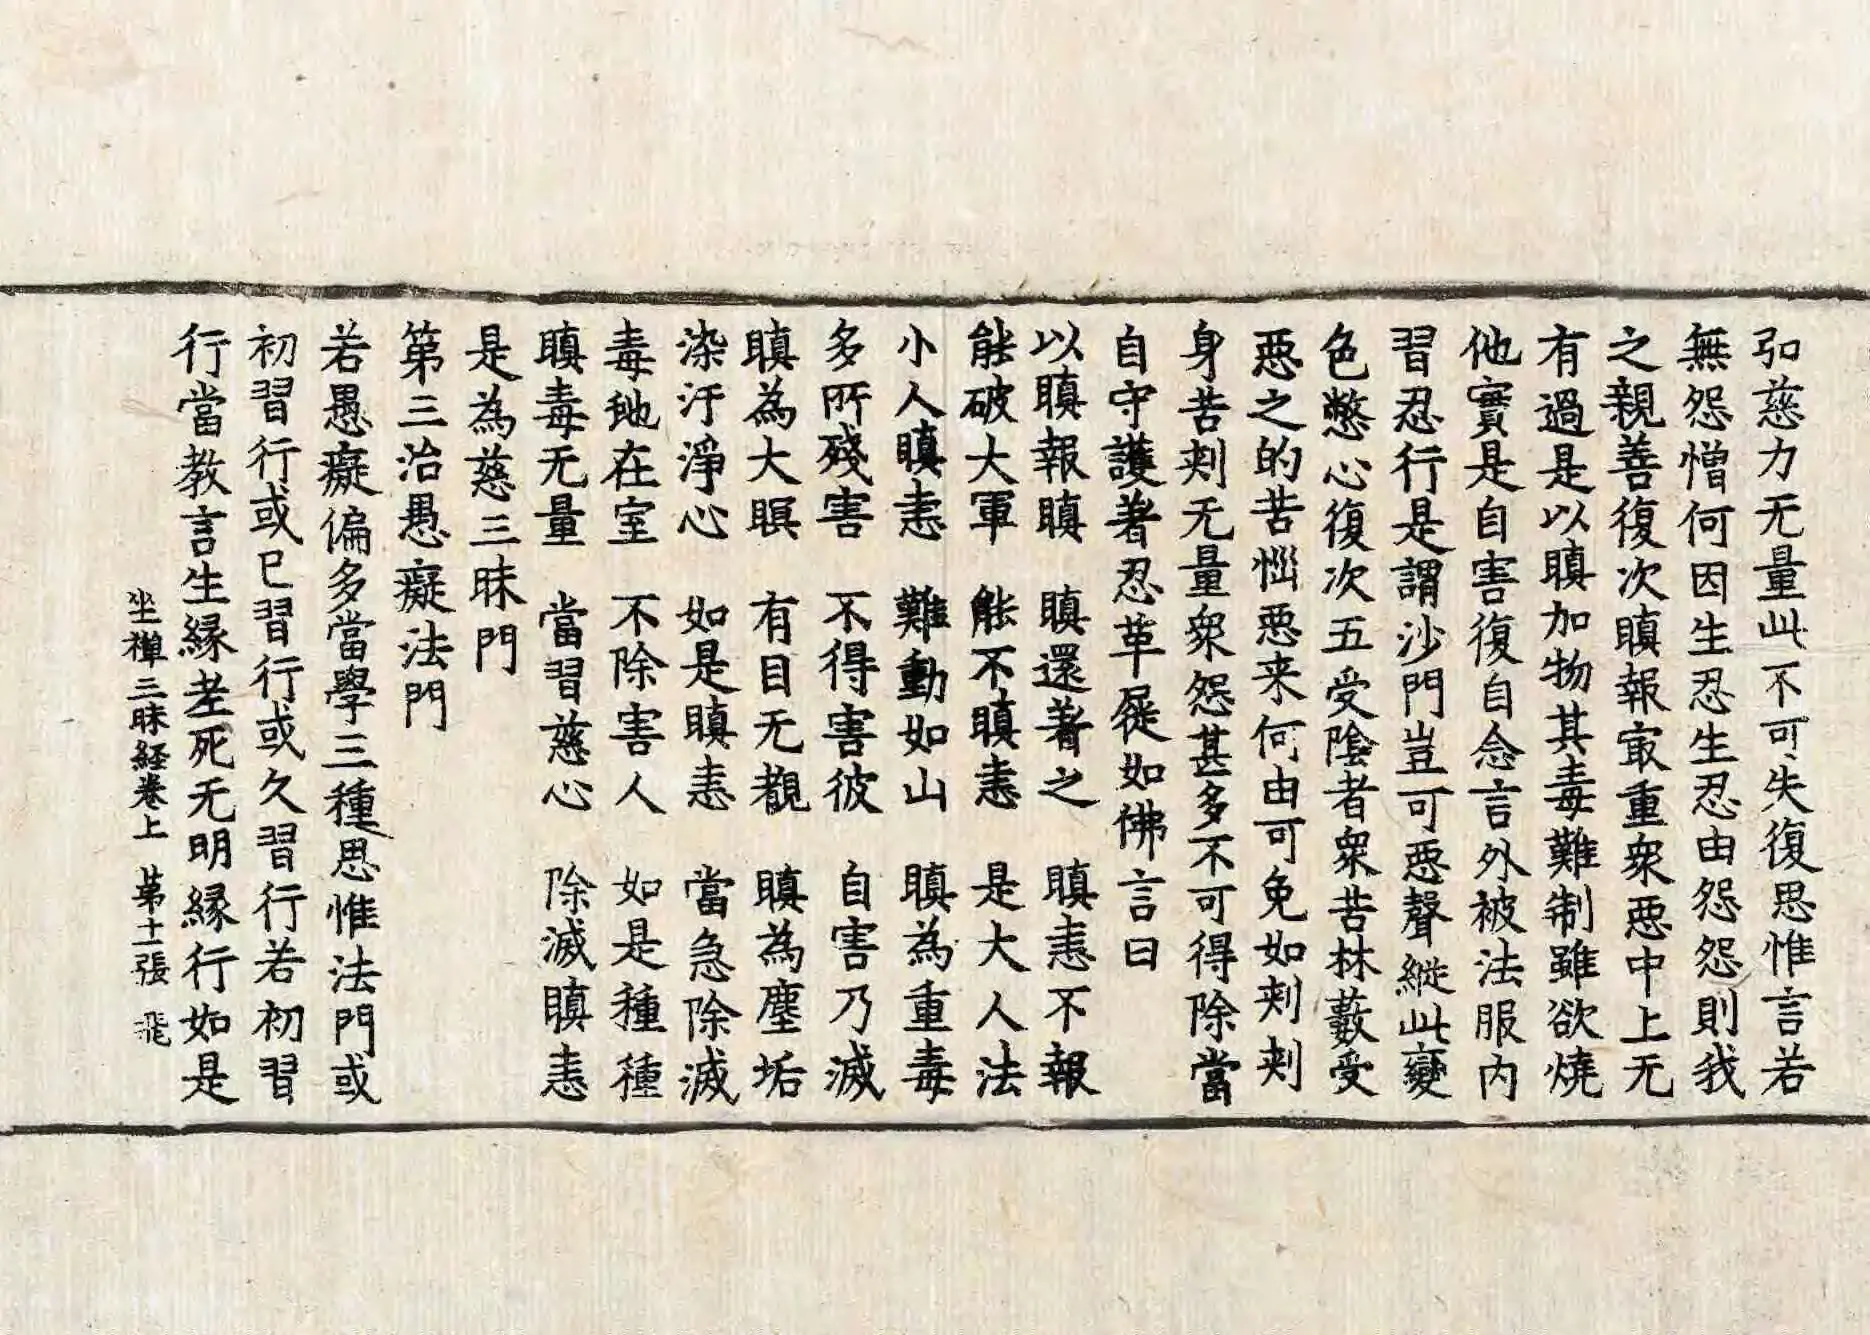 弘慈力无量此不可失復思惟言若
無怨憎何因生忍生忍由怨怨則我
之親善復次瞋報㝡重衆惡中上无
有過是以瞋加物其毒難制雖欲燒
他實是自害復自念言外被法服內
習忍行是謂沙門豈可惡聲縱此變
色憋心復次五受陰者衆苦林藪受
惡之的苦惱惡来何由可免如刾刾
身苦刾无量衆怨甚多不可得除當
自守護著忍革屣如佛言曰
以瞋報瞋　瞋還著之　瞋恚不報
能破大軍　能不瞋恚　是大人法
小人瞋恚　難動如山　瞋為重毒
多所殘害　不得害彼　自害乃滅
瞋為大瞑　有目无覩　瞋為塵垢
染汙淨心　如是瞋恚　當急除滅
毒虵在室　不除害人　如是種種
瞋毒无量　當習慈心　除滅瞋恚
是為慈三昧門
第三治愚癡法門
若愚癡偏多當學三種思惟法門或
初習行或已習行或久習行若初習
行當教言生緣老死无明緣行如是
坐禪三昧経卷上　第十一張　飛